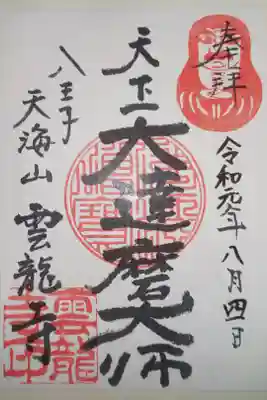 奉拝
令和元年八月四日
天下一大達磨大師
八王子
天海山雲龍寺
雲龍